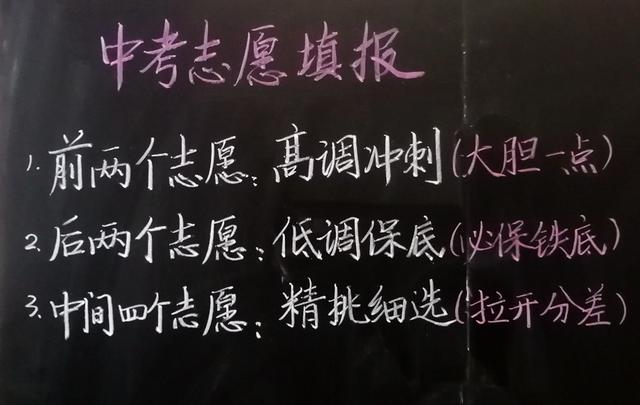 中考志愿填报
1. 前两个志愿：高调冲刺（大胆一点）
2. 后两个志愿：低调保底（必保铁底）
3. 中间四个志愿：精挑细选（拉开分差）